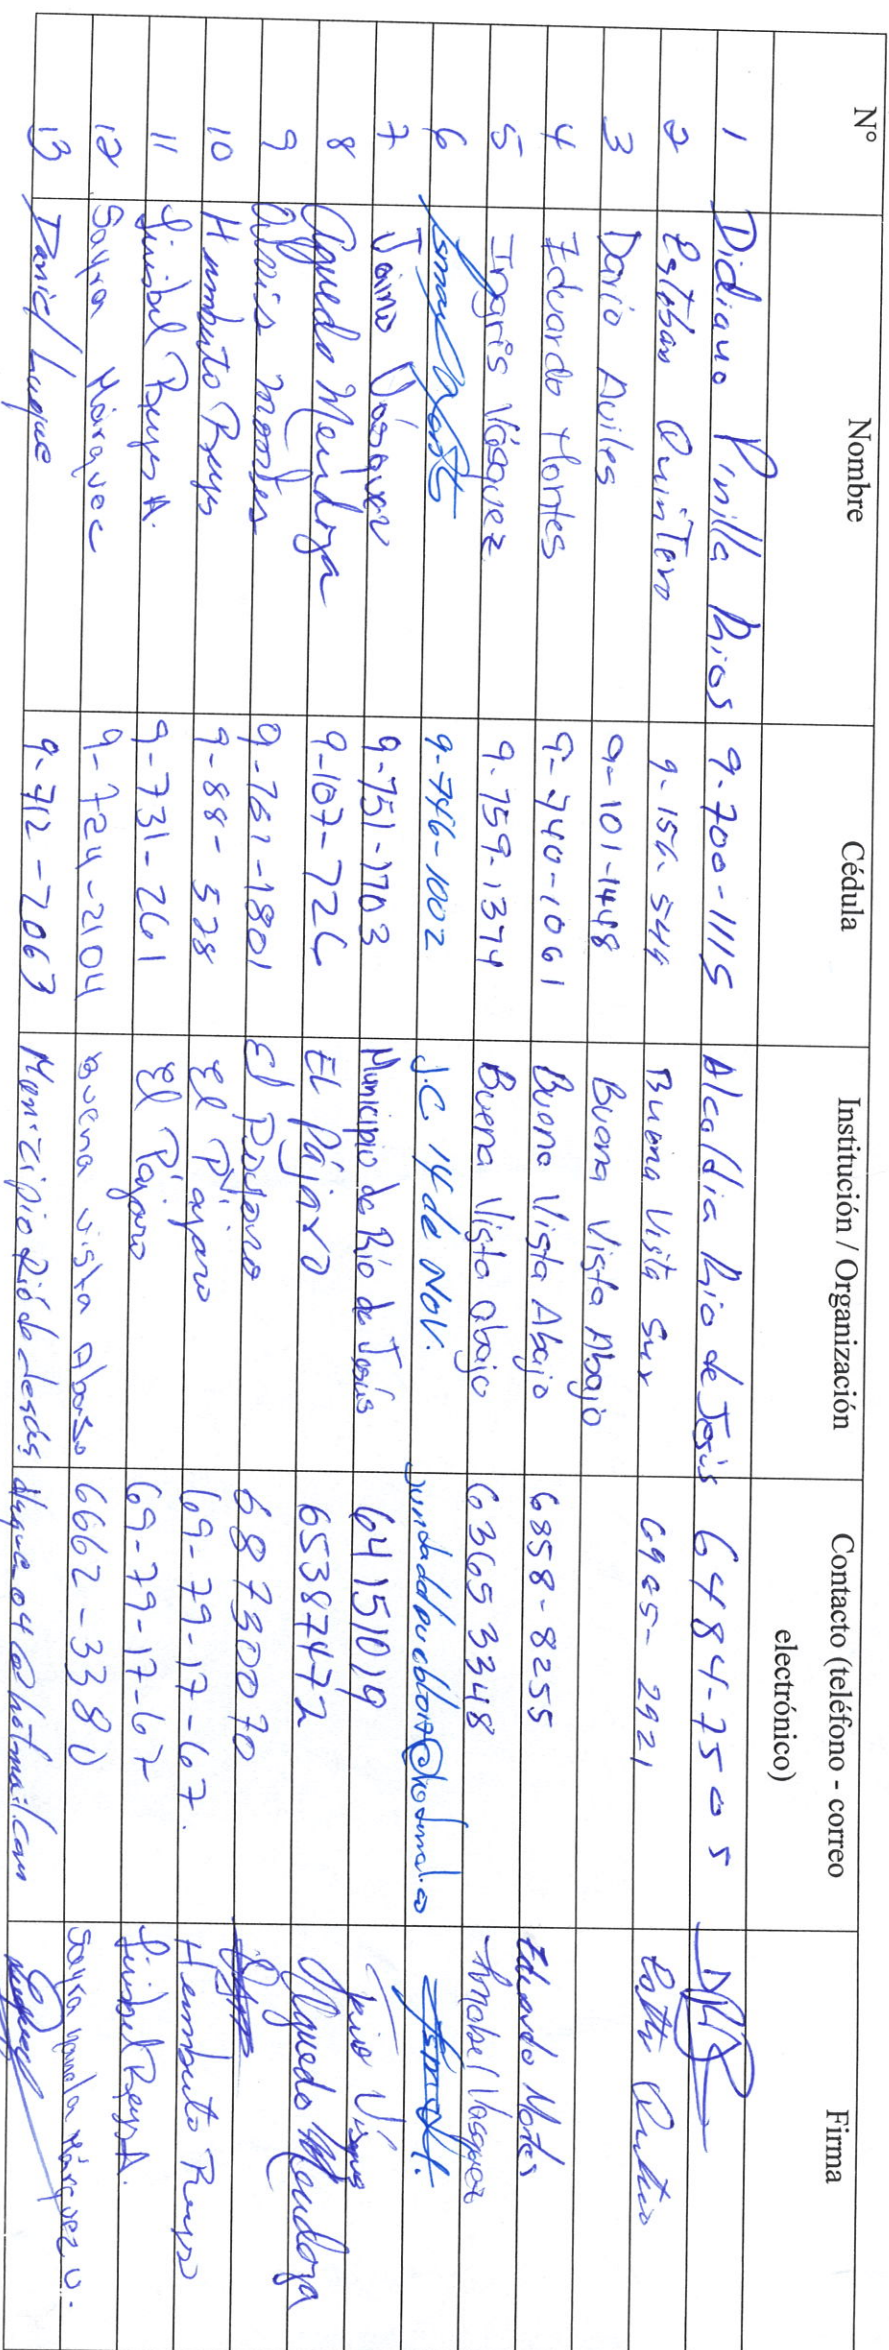 N° Nombre Cédula Institución / Organización Contacto (teléfono - correo electrónico) Firma
1 Didiano Pinilla Rios 9-700-1115 Alcaldia Rio de Jesús 6484-7505
2 Esteban Quintero 9-156-544 Buena Vista Sur 6965-2921
3 Dario Aviles 9-101-1448 Buena Vista Abajo
4 Eduardo Montes 9-740-1061 Buena Vista Abajo 6858-8255 Eduardo Montes
5 Ingris Vásquez 9-759-1374 Buena Vista abajo 63653348 Vasquez
6 9-746-1002 J.C. 14 de NOV.
7 Jaime Vásquez 9-751-1703 Municipio de Río de Jesús 64151019
8 Aquedo Mendoza 9-107-726 EL Pájaro 65387472 Aquedo Mendoza
9 9-761-1801 El Pájaro 68730070
10 Humberto Reyes 9-88-528 El Pájaro 69-79-17-67. Humberto Reyes
11 Reyes A. 9-731-261 El Pájaro 69-79-17-67 Reyes A.
12 Sayra Márquez 9-724-2104 Buena vista Abajo 6662-3380 Sayra Márquez U.
13 Daniel Luque 9-712-2063 Municipio Río de Jesús dluque04@hotmail.com